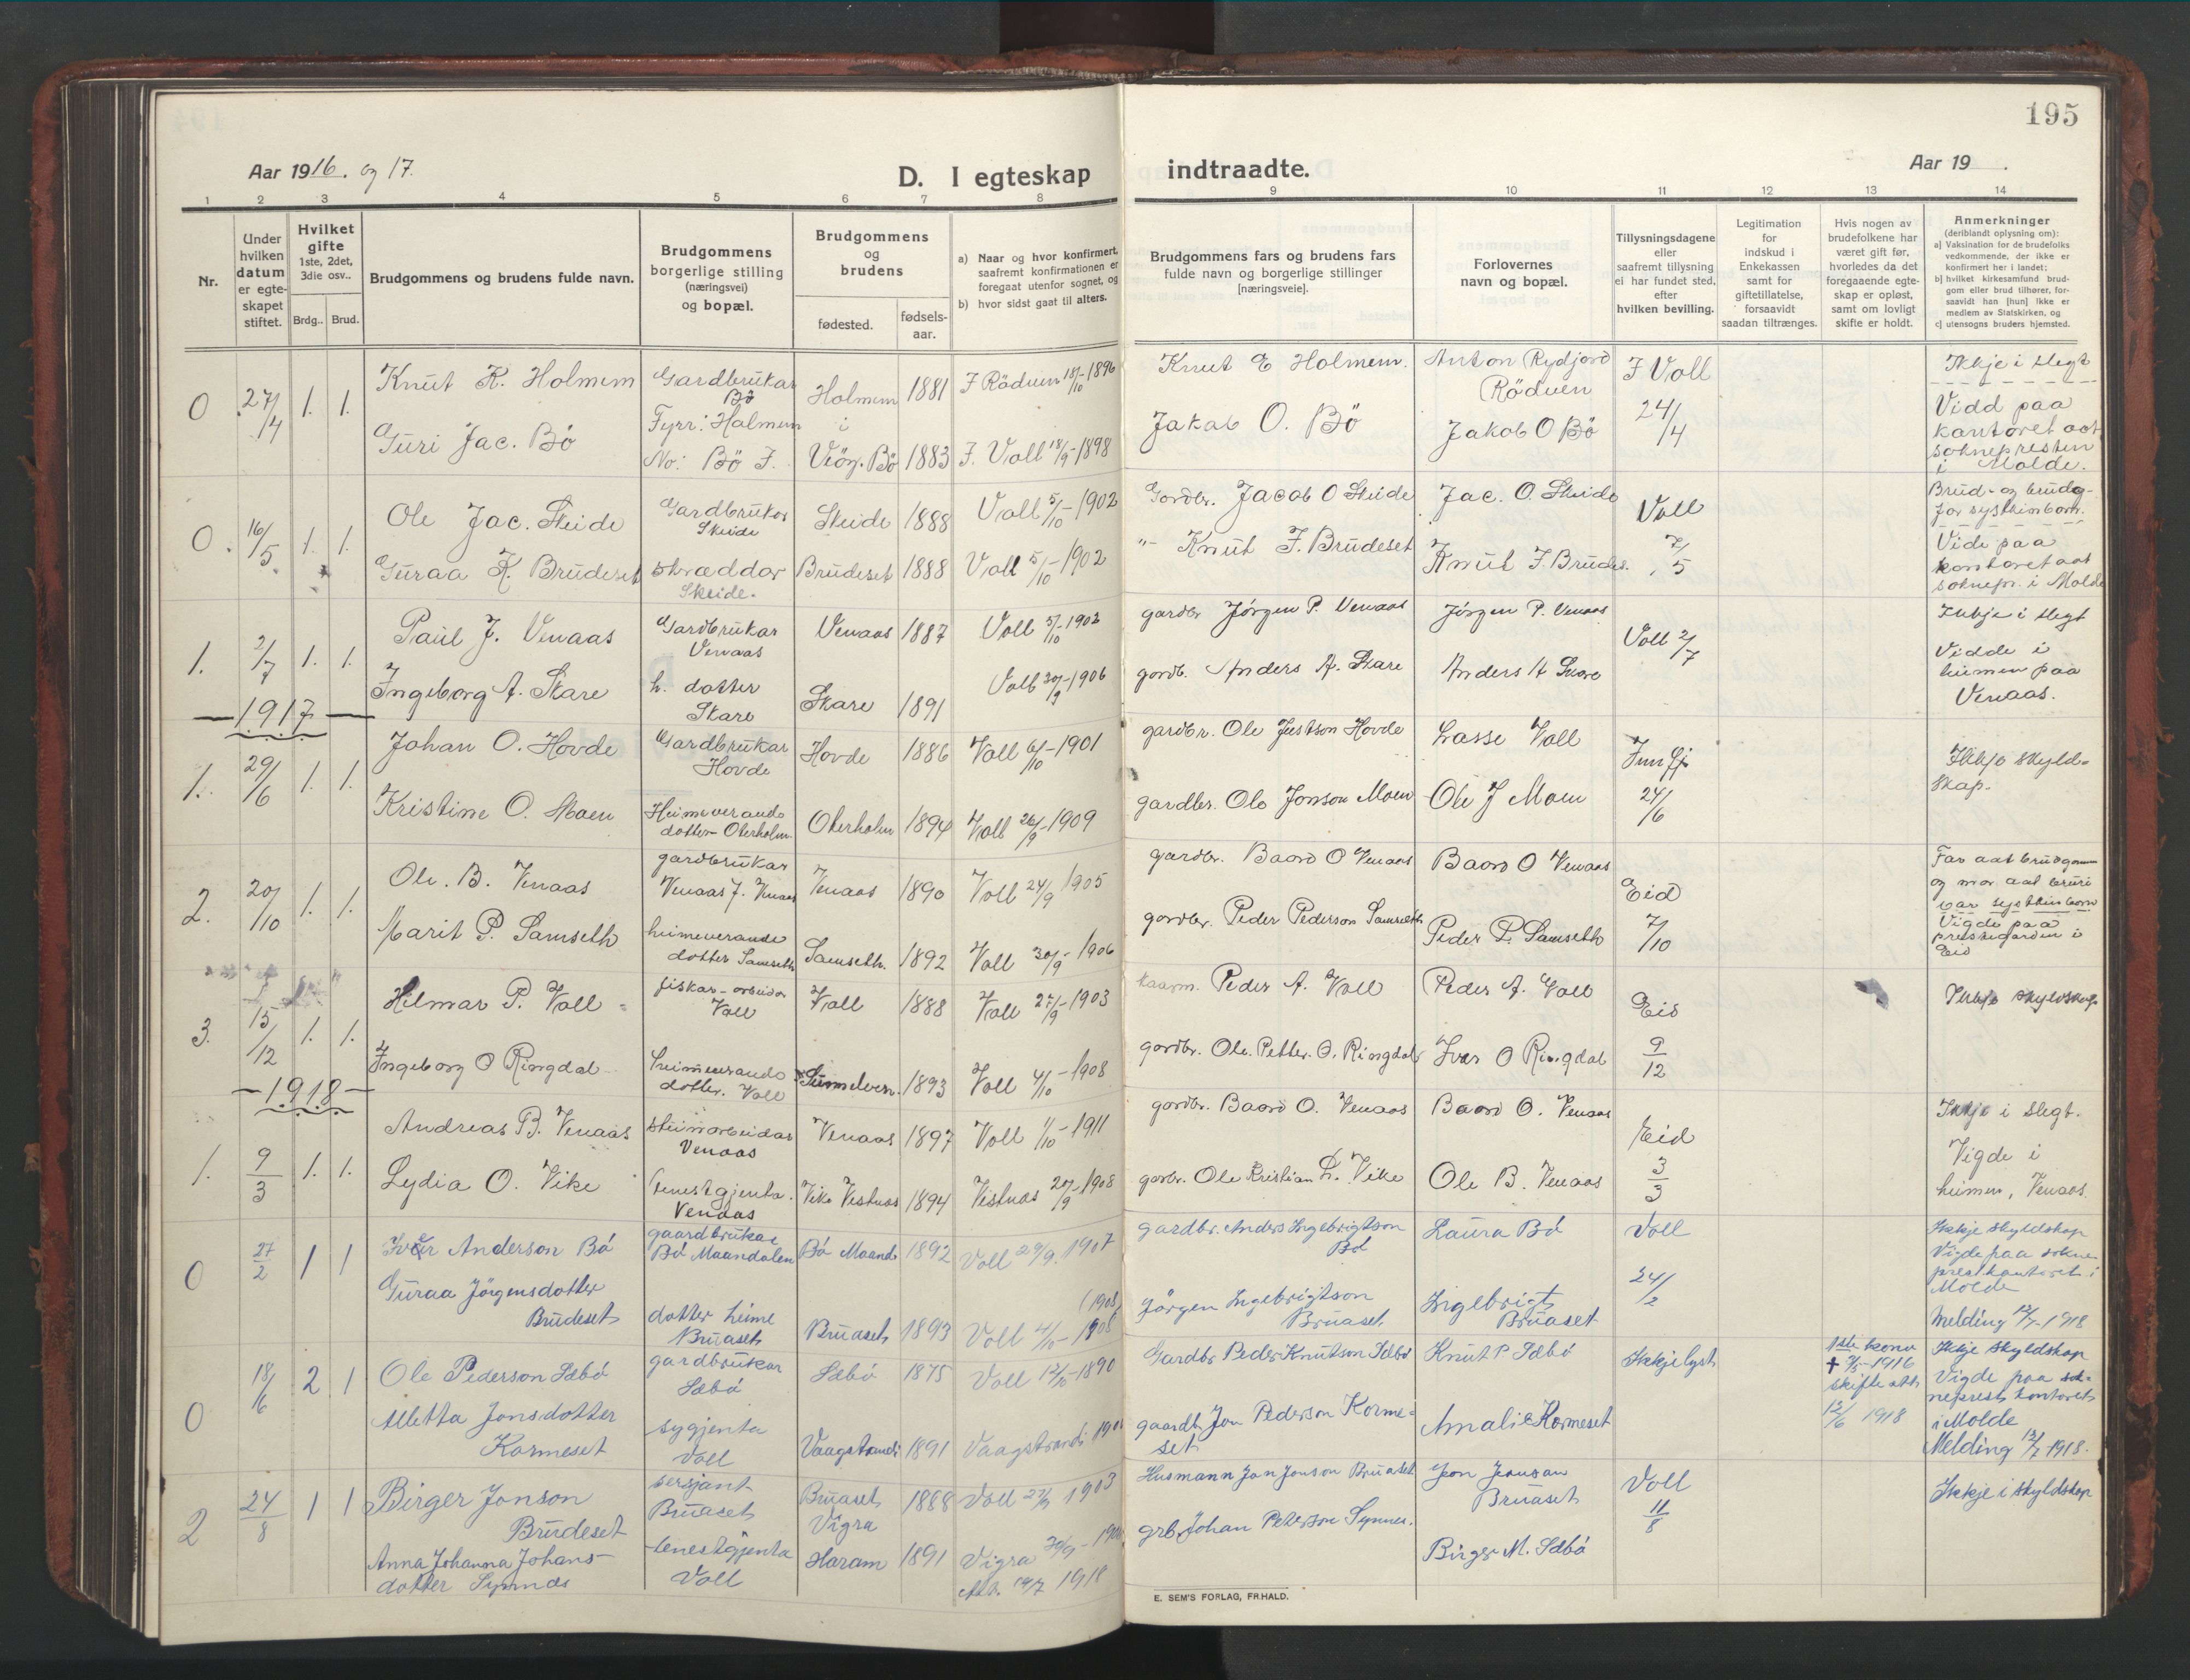 195
Aar 1916. og 17.
D. I egteskap
indtraadte.
Aar 19 .
1 2 3 4 5 6 7 8 9 10 11 12 13 14
Nr.
Under
hvilken
datum
er egte-
skapet
stiftet.
Hvilket
gifte
1ste, 2det,
3die osv..
Brdg.. Brud.
Brudgommens og brudens fulde navn.
Brudgommens
borgerlige stilling
(næringsvei)
og bopæl.
Brudgommens
og
brudens
fødested.
fødsels-
aar.
a) Naar og hvor konfirmert,
saafremt konfirmationen er
foregaat utenfor sognet, og
b) hvor sidst gaat til alters.
Brudgommens fars og brudens fars
fulde navn og borgerlige stillinger
[næringsveie].
Forlovernes
navn og bopæl.
Tillysningsdagene
eller
saafremt tillysning
ei har fundet sted,
efter
hvilken bevilling.
Legitimation
for
indskud i
Enkekassen
samt for
giftetillatelse,
forsaavidt
saadan tiltrænges.
Hvis nogen av
brudefolkene har
været gift før,
hvorledes da det
foregaaende egte-
skap er opløst,
samt om lovligt
skifte er holdt.
Anmerkninger
(deriblandt oplysning om):
a) Vaksination for de brudefolks
vedkommende, der ikke er
konfirmert her i landet;
b) hvilket kirkesamfund brud-
gom eller brud tilhører, for-
saavidt han [hun] ikke er
medlem av Statskirken, og
c) utensogns bruders hjemsted.
0 27/4 1. 1.
Knut K. Holmem
Guri Jac. Bö
Gardbrukar
Bö
Fyrr: Holmem
No: Bö J.
Holmem 1881 J Röduen 18/10-1896
i
Vöy. Bö 1883 J. Voll 18/9-1898
Knut E Holmem.
Jakob O. Bö
Anton Rydjord
Röduen
Jakob O Bö
J Voll
24/4
Ikkje i slegt
Vidd paa
kantoret aat
soknepresten
i Molde.
0. 16/5. 1. 1.
Ole Jac. Skeide
Guraa K. Brudeset
Gardbrukar
Skeide
skræddar
Skeide.
Skeide 1888 Voll 5/10-1902
Brudeset 1888 Voll 5/10-1902
Gardbr. Jacob O Skeide
"- Knut J. Brudeset
Jac. O. Skeide
Knut J. Brudes.
Voll
7/5
Brud- og brudg-
far syskinborn.
Vide paa
kontoret aat
soknepr. i Molde
1. 2/7 1. 1.
Paul J. Venaas
Ingeborg A. Skare
Gardbrukar
Venaas
h. dotter
Skare
Venaas 1887 Voll 5/10-1902
Skare 1891 Voll 30/9-1906
gardbr Jørgen P. Venaas
gardb. Anders A. Skare
Jørgen P. Venaas
Anders A Skare
Voll 2/7
Ikkje i slegt
Vidde i
heimen paa
Venaas.
1917
1. 29/6 1. 1.
Johan O. Hovde
Kristine O. Moen
Gardbrukar
Hovde
Heimeverande
dotter Oterholm.
Hovde 1886 Voll 6/10-1901
Oterholm 1894 Voll 26/9-1909
gardbr. Ole Justson Hovde
gardbr. Ole Jonson Moen
Lasse Voll
Ole J Moen
24/6
Ikkje skyld-
skap.
2. 20/10 1. 1.
Ole. B. Venaas
Marit P. Samseth
gardbrukar
Venaas J. Venaas
heimeverande
dotter Samseth
Venaas 1890 Voll 24/9 1905
Samseth. 1892 Voll 30/9-1906
gardbr. Baard O Venaas
gardbr. Peder Pederson Samseth
Baard O Venaas
Peder P. Samseth
Eid
7/10
Far aat brudgom
og mor aat bruri
var syskinborn
Vigde paa
prestegarden i
Eid
3. 15/12 1. 1.
Hilmar P. Voll
Ingeborg O Ringdal
fiskar-arbeidar
Voll
heimeverande
dotter. Voll
Voll 1888 Voll 27/9-1903
Sunnelven. 1893 Voll 4/10-1908
kaarm. Peder A. Voll
gardbr. Ole. Petter. O. Ringdal
Peder A. Voll
Ivar O Ringdal
Eid
9/12
Ikkje skyldskap
1918
1. 9/3 1. 1.
Andreas B. Venaas
Lydia O. Vike
steinarbeidar
Venaas
tenestgjenta.
Venaas
Venaas 1897 Voll 1/10-1911
Vike Vestnas 1894 Vestnas 20/9-1908
gardbr. Baard O. Venaas
gardbr. Ole Kristian L. Vike
Baard O. Venaas
Ole B. Venaas
Eid
3/3
Ikkje i slegt.
Vigde i
heimen, Venaas.
0 27/2 1 1
Iver Anderson Bö
Guraa Jörgensdotter
Brudeset
gaardbrukar
Bö Maandalen
dotter heime
Bruaset
Bö Maand. 1892 Voll 29/9. 1907
(1908)
Bruaset 1893 Voll 4/10-1908
gardbr. Anders Ingebrigtson
Bö
Jörgen Ingebrigtson
Bruaset
Laura Bö
Ingebrigt
Bruaset
Voll
24/2
Ikkje skyldskap
Vigde paa sokne-
prestkontoret i
Molde
Melding 12/7-1918
0 18/6 2 1
Ole Pederson Sæbö
Aletta Jonsdotter
Kormeset
gardbrukar
Sæbö
sygjenta
Voll
Sæbö 1875 Voll 12/10-1890
Vaagstrandi 1891 Vaagstrandi
Gardbr Peder Knutson Sæbö
gaardb. Jon Pederson Korme-
set
Knut P Sæbö
Amalie Kormeset
Ikkje lyst
1ste kona
✝ 9/5-1916
skifte att
12/6 1918
Ikkje skyldskap
Vigde paa sok-
neprest kontoret
i Molde
Melding 12/7 1918.
2 24/8 1 1
Birger Jonson
Brudeset
Anna Johanna Johans-
dotter Synnes
sersjant
Bruaset
tenestgjenta
Voll
Bruaset 1888 Voll 27/9 1903
Vigra
Haram 1891 Vigra 30/9-
Att. 14/7 1918
Husmann Jon Jonson Bruaset
grb. Johan Peterson Synnes.
Jon Jonson
Bruaset
Birger M. Sæbö
Voll
11/8
Ikkje i skyldskap
E. SEM'S FORLAG, FR.HALD.